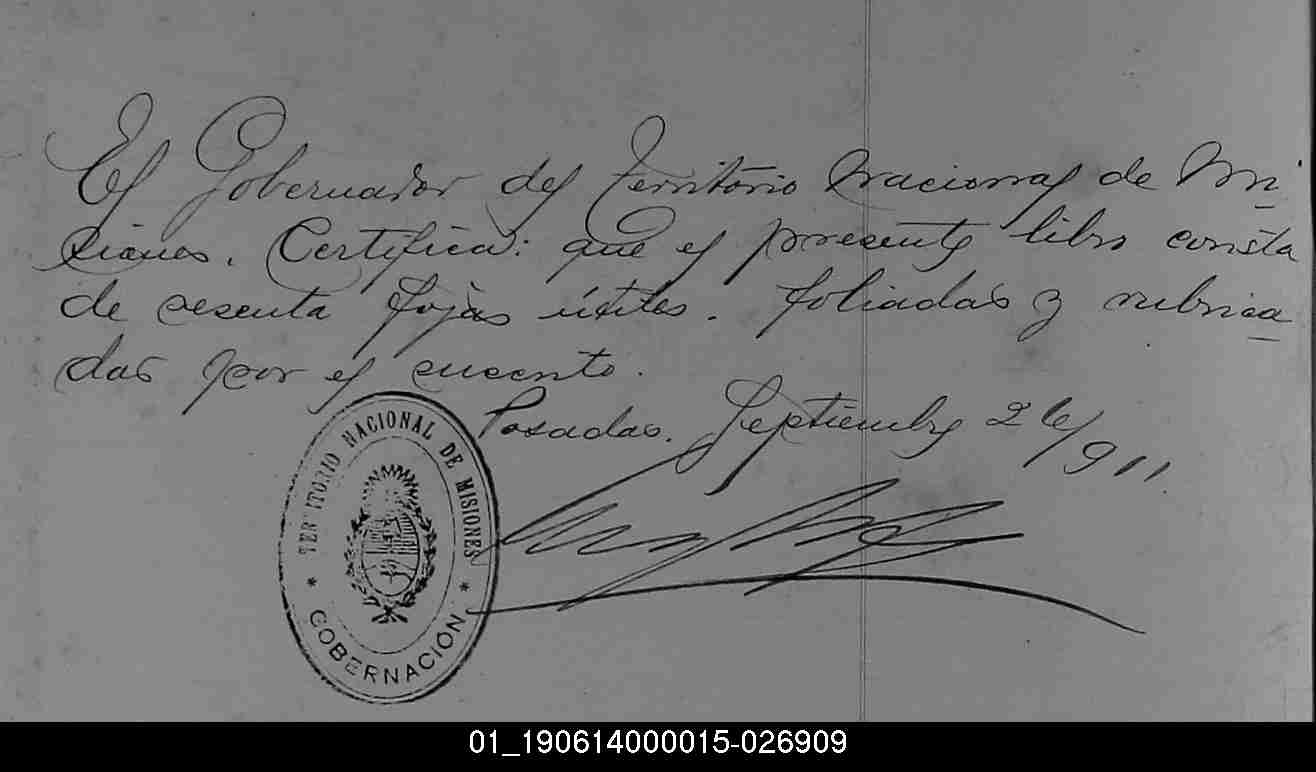 El Gobernador del Territorio Nacional de Mi
siones. Certifica: que el presente libro consta
de sesenta fojas útiles. foliadas y rubrica
das por el suscrito.
Posadas. Septiembre 26/911.
TERRITORIO NACIONAL DE MISIONES
* GOBERNACIÓN *
01_190614000015-026909